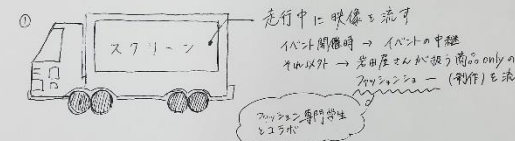 ①
スクリーン
走行中に映像を流す
イベント開催時 → イベントの中継
それ以外 → 岩田屋さんが扱う商品onlyの
ファッションショー (制作) を流
ファッション専門学生
とコラボ